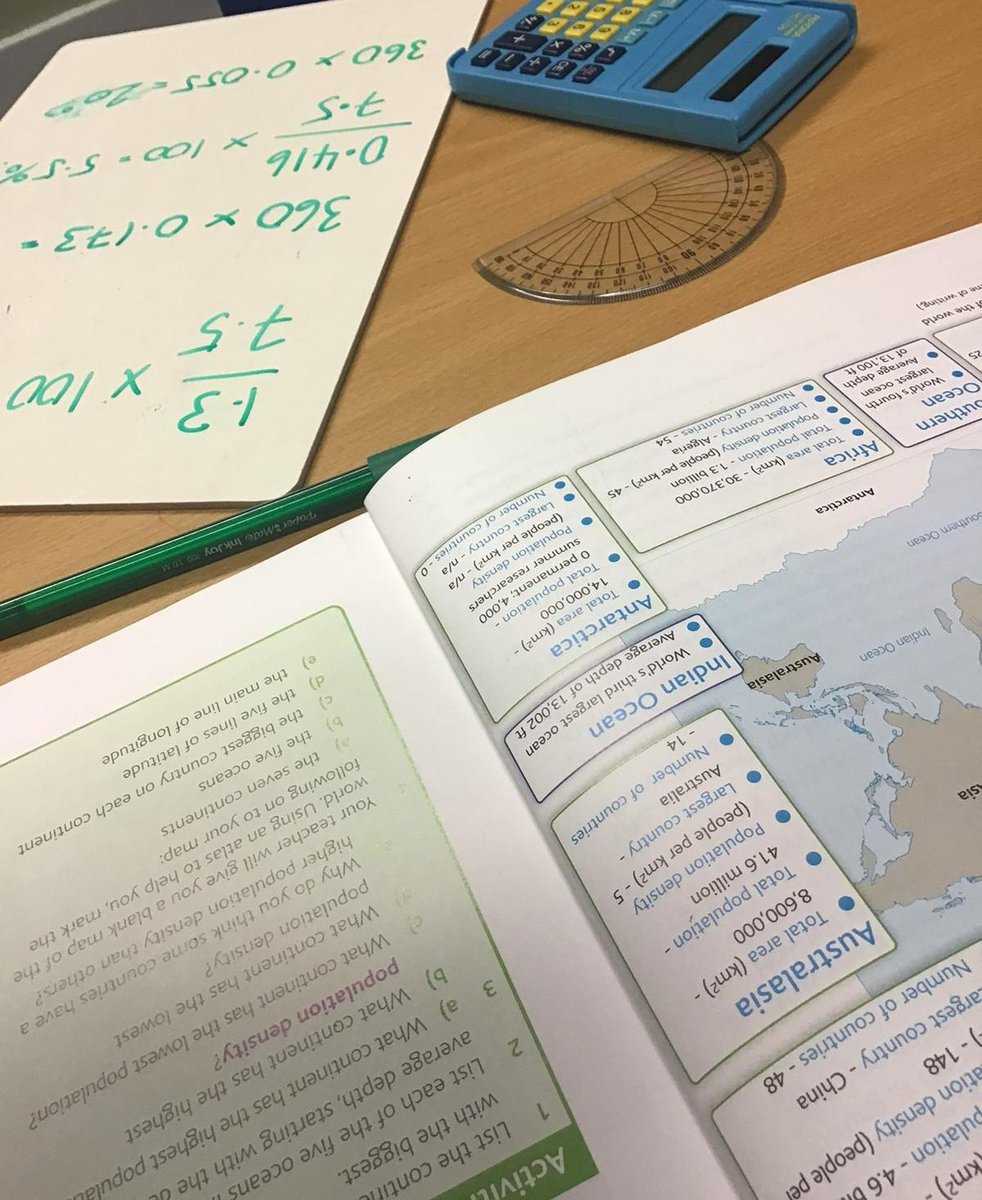 (km²)
population - 4.6
ation density (people per
) - 148
Largest country - China
Number of countries - 48
Australasia
Total area (km²) -
8,600,000
Total population -
41.6 million
Population density
(people per km²) - 5
Largest country -
Australia
Number of countries
- 14
Indian Ocean
World's third largest ocean
Average depth of 13,002 ft
Antarctica
Total area (km²) -
14,000,000
Total population -
0 permanent; 4,000
summer researchers
Population density
(people per km²) - n/a
Largest country - n/a
Number of countries - 0
Africa
Total area (km²) - 30,370,000
Total population - 1.3 billion
Population density (people per km²) - 45
Largest country - Algeria
Number of countries - 54
uthern
Ocean
World's fourth
largest ocean
Average depth
of 13,100 ft
of the world
me of writing)
asia
Australasia
Indian Ocean
outhern Ocean
Antarctica
Activiti
1 List the contine
with the biggest.
2 List each of the five oceans in
average depth, starting with the de
3 a) What continent has the highest popula
b) What continent has the highest
population density?
c) What continent has the lowest population?
What continent has the lowest
population density?
Why do you think some countries have a
higher population density than others?
Your teacher will give you a blank map of the
world. Using an atlas to help you, mark the
following on to your map:
a) the seven continents
b) the five oceans
c) the biggest country on each continent
d) the five lines of latitude
e) the main line of longitude
PaperMate InkJoy 100 1.0 M
1.3
7.5 × 100
360 × 0.173 =
0.416
7.5 × 100 = 5.5%
360 × 0.055 = 20°